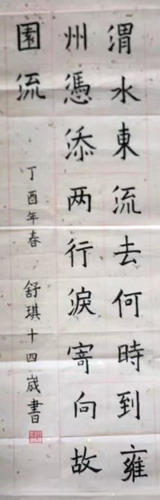 渭水東流去何時到雍
州憑添两行淚寄向故
園流
丁酉年春 舒琪十四歲書